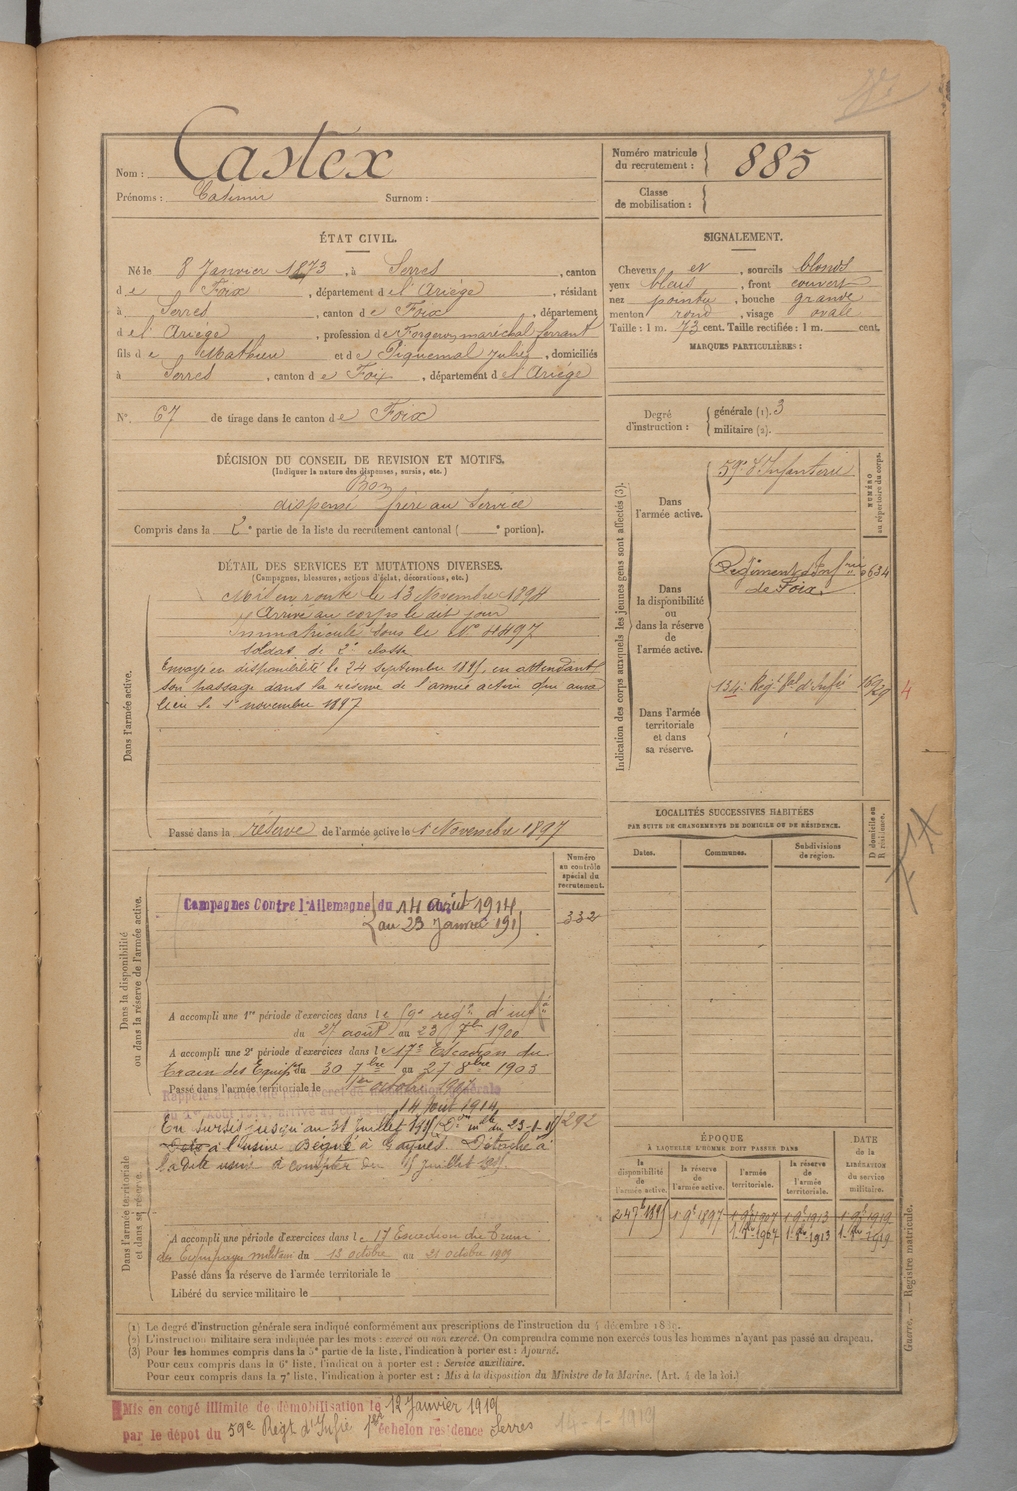 Nom : Castex
Prénoms : Casimir Surnom :
Numéro matricule du recrutement : 885
Classe de mobilisation :
ÉTAT CIVIL.
Né le 8 Janvier 1873, à Serres, canton
de Foix, département de l'Ariège, résidant
à Serres, canton de Foix, département
de l'Ariège, profession de Forgeron maréchal ferrant
fils de Mathieu et de Piquemal Julie, domiciliés
à Serres, canton de Foix, département de l'Ariège
N° 67 de tirage dans le canton de Foix
SIGNALEMENT.
Cheveux et, sourcils blonds
yeux bleus, front couvert
nez pointu, bouche grande
menton rond, visage ovale
Taille : 1 m. 73 cent. Taille rectifiée : 1 m. cent.
MARQUES PARTICULIÈRES :
Degré d'instruction : générale (1). 3
militaire (2).
DÉCISION DU CONSEIL DE REVISION ET MOTIFS.
(Indiquer la nature des dispenses, sursis, etc.)
Bon
dispensé frère au Service
Compris dans la 2e partie de la liste du recrutement cantonal ( e portion).
DÉTAIL DES SERVICES ET MUTATIONS DIVERSES.
(Campagnes, blessures, actions d'éclat, décorations, etc.)
Dans l'armée active.
Mis en route le 13 Novembre 1894
Arrivé au corps le dit jour
Immatriculé sous le N° 4497
soldat de 2e classe
Envoyé en disponibilité le 24 septembre 1895, en attendant
son passage dans la réserve de l'armée active qui aura
lieu le 1er novembre 1897
Passé dans la réserve de l'armée active le 1er Novembre 1897
Indication des corps auxquels les jeunes gens sont affectés (3).
NUMÉRO au répertoire du corps.
Dans l'armée active.
59e d'Infanterie
Dans la disponibilité ou dans la réserve de l'armée active.
Régiment d'Infrie 634
de Foix.
Dans l'armée territoriale et dans sa réserve.
134e Régt tal d'Infie
4
LOCALITÉS SUCCESSIVES HABITÉES
PAR SUITE DE CHANGEMENTS DE DOMICILE OU DE RÉSIDENCE.
Dates. Communes. Subdivisions de région. D domicile ou R résidence.
Dans la disponibilité ou dans la réserve de l'armée active.
Numéro au contrôle spécial du recrutement.
Campagnes Contre l'Allemagne du 14 Août 1914
au 23 Janvier 1915
332
A accompli une 1re période d'exercices dans le 59e régt d'infie
du 27 août au 23 7bre 1900
A accompli une 2e période d'exercices dans le 17e Escadron du
train des Equip. du 30 7bre au 27 8bre 1903
Passé dans l'armée territoriale le 1er octobre 1907
Rappelé à l'activité par décret de mobilisation générale
du 1er Août 1914, arrivé au corps le 14 Août 1914
Dans l'armée territoriale et dans sa réserve.
En sursis jusqu'au 31 juillet 1915 du 23-1-15 292
à l'usine Bégué à Détaché à
ladite usine à compter du 15 juillet 1915.
A accompli une période d'exercices dans le 17 Escadron du Train
des Equipages militaire du 13 octobre au 21 octobre 1909
Passé dans la réserve de l'armée territoriale le
Libéré du service militaire le
ÉPOQUE
À LAQUELLE L'HOMME DOIT PASSER DANS
DATE de la LIBÉRATION du service militaire.
la disponibilité de l'armée active. la réserve de l'armée active. l'armée territoriale. la réserve de l'armée territoriale.
24 7b 1895 1 9b 1897 1 9b 1907 1 9b 1913 1 9b 1919
1 8bre 1907 1 8bre 1913 1 8bre 1919
Guerre. — Registre matricule.
(1) Le degré d'instruction générale sera indiqué conformément aux prescriptions de l'instruction du 4 décembre 1889.
(2) L'instruction militaire sera indiquée par les mots : exercé ou non exercé. On comprendra comme non exercés tous les hommes n'ayant pas passé au drapeau.
(3) Pour les hommes compris dans la 5e partie de la liste, l'indication à porter est : Ajourné.
Pour ceux compris dans la 6e liste, l'indication à porter est : Service auxiliaire.
Pour ceux compris dans la 7e liste, l'indication à porter est : Mis à la disposition du Ministre de la Marine. (Art. 4 de la loi.)
Mis en congé illimité de démobilisation le 12 Janvier 1919
par le dépôt du 59e Régt d'Infie 1er échelon résidence Serres 14-1-1919